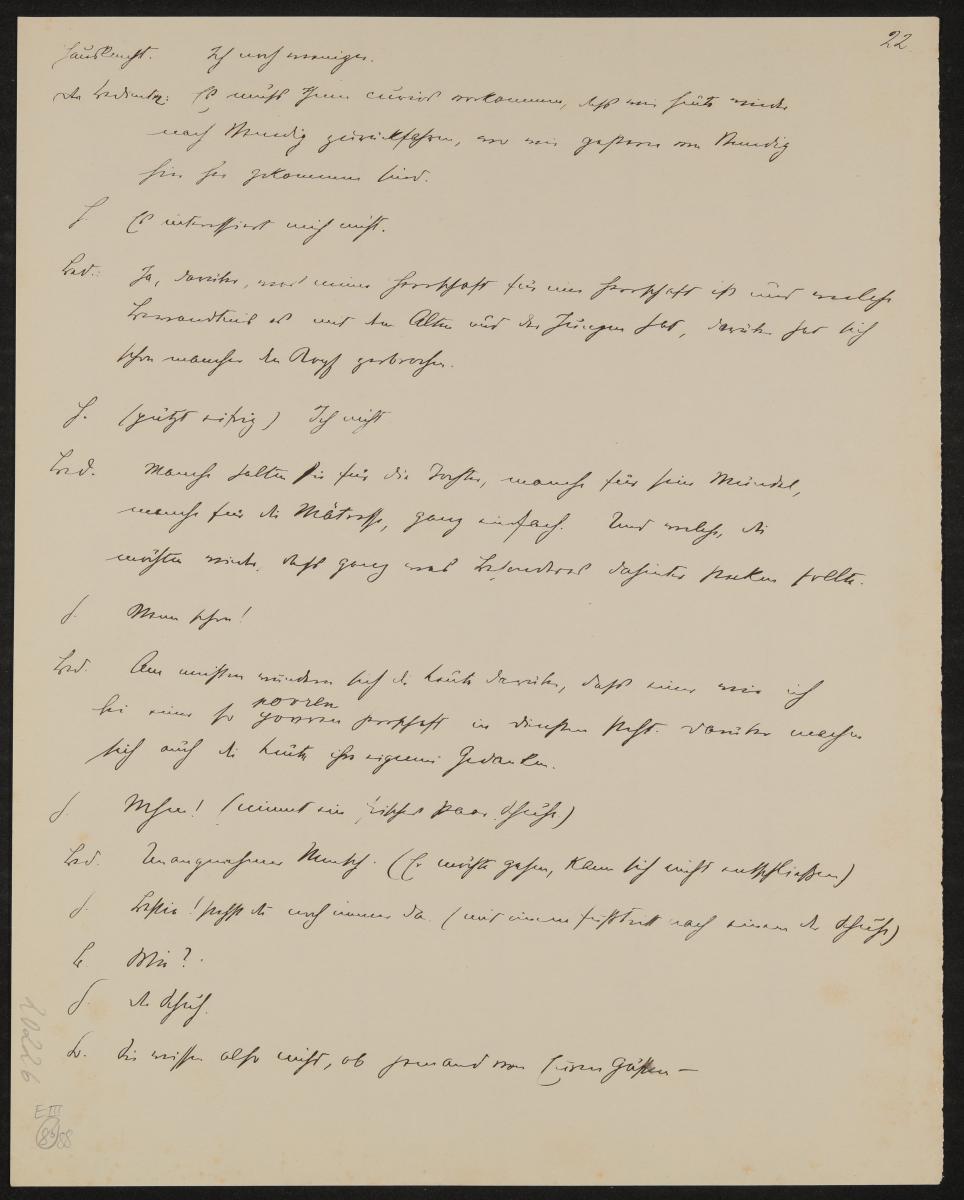 22.
Hausknecht. Ich noch weniger.
Der Bediente: Es muss Ihnen curios vorkommen, dass wir heute wieder
nach Venedig zurückfahren, wo wir gestern von Venedig
hier her gekommen sind.
H. Es interessiert mich nicht.
Bed.: Ja, darüber, was meine Herrschaft für eine Herrschaft ist und welche
Bewandtnis es mit dem Alten und der Jungen hat, darüber hat sich
schon mancher den Kopf zerbrochen.
H. (putzt eifrig) Ich nicht
Bed. Manche halten sie für die Tochter, manche für sein Mündel,
manche für die Mätresse, ganz einfach. Und welche, die
möchten wieder, dass ganz was Besonderes dahinter stecken sollte.
H. Wenn schon!
Bed. Am meisten wundern sich die Leute darüber, dass einer wie ich
bei einer so
noblen Herrschaft in Diensten steht. Darüber machen
sich auch die Leute ihre eigenen Gedanken.
H. (nimmt ein frisches Paar Schuhe)
Bed. Unangenehmer Mensch. (Er möchte gehen, kann sich nicht entschliessen)
H. Bestie! stehst du noch immer da. (mit einem Fusstritt nach einem der Schuhe)
B. Wie?
H. Der Schuh.
B. Sie wissen also nicht, ob jemand von Euren Gästen –
20226
E III
88